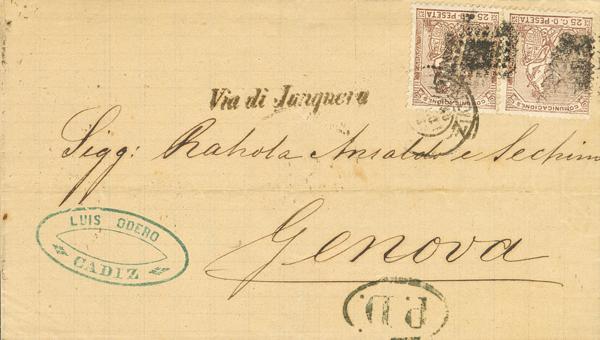 25 C.D. PESETA
25 C.D. PESETA
COMUNICACIONES
COMUNICACIONES
Via di Junquera
Sigg: Rahola Ansaldo e Sechino
Genova
LUIS ODERO
CADIZ
P.D.